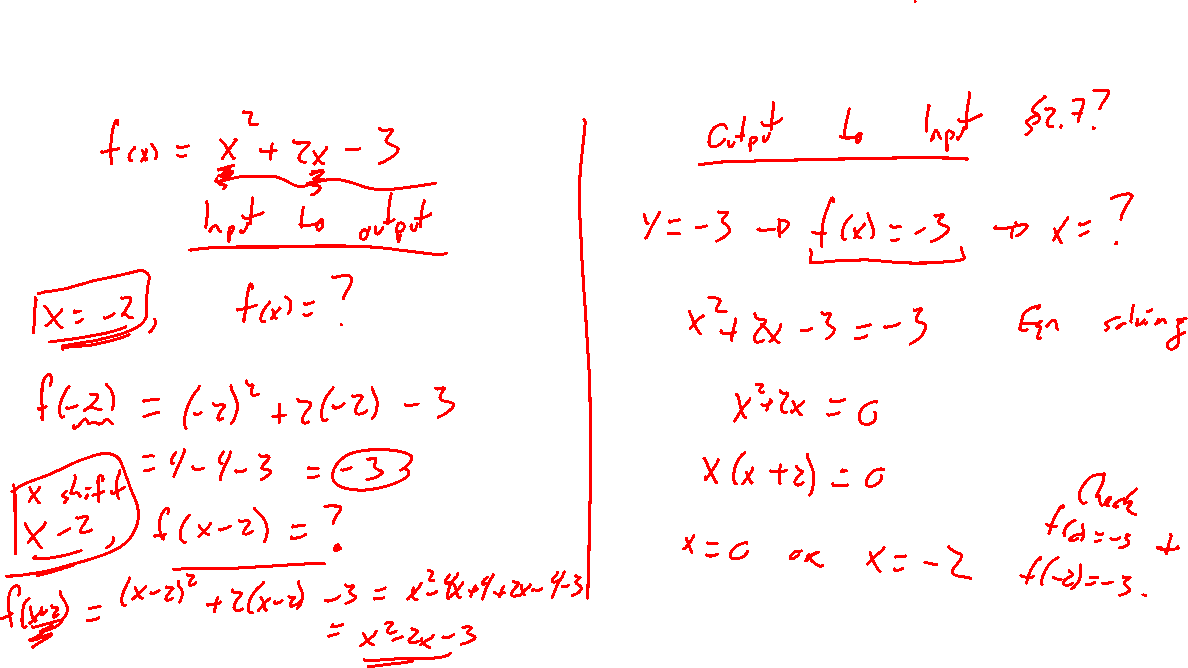 f(x) = x² + 2x - 3
Input to output
x = -2, f(x) = ?
f(-2) = (-2)² + 2(-2) - 3
= 4 - 4 - 3 = -3
x shift
x - 2, f(x-2) = ?
f(x-2) = (x-2)² + 2(x-2) - 3 = x² - 4x + 4 + 2x - 4 - 3
= x² - 2x - 3
Output to Input §2.7?
y = -3 → f(x) = -3 → x = ?
x² + 2x - 3 = -3 Eqn solving
x² + 2x = 0
x(x + 2) = 0
x = 0 or x = -2
Check
f(0) = -3 +
f(-2) = -3.